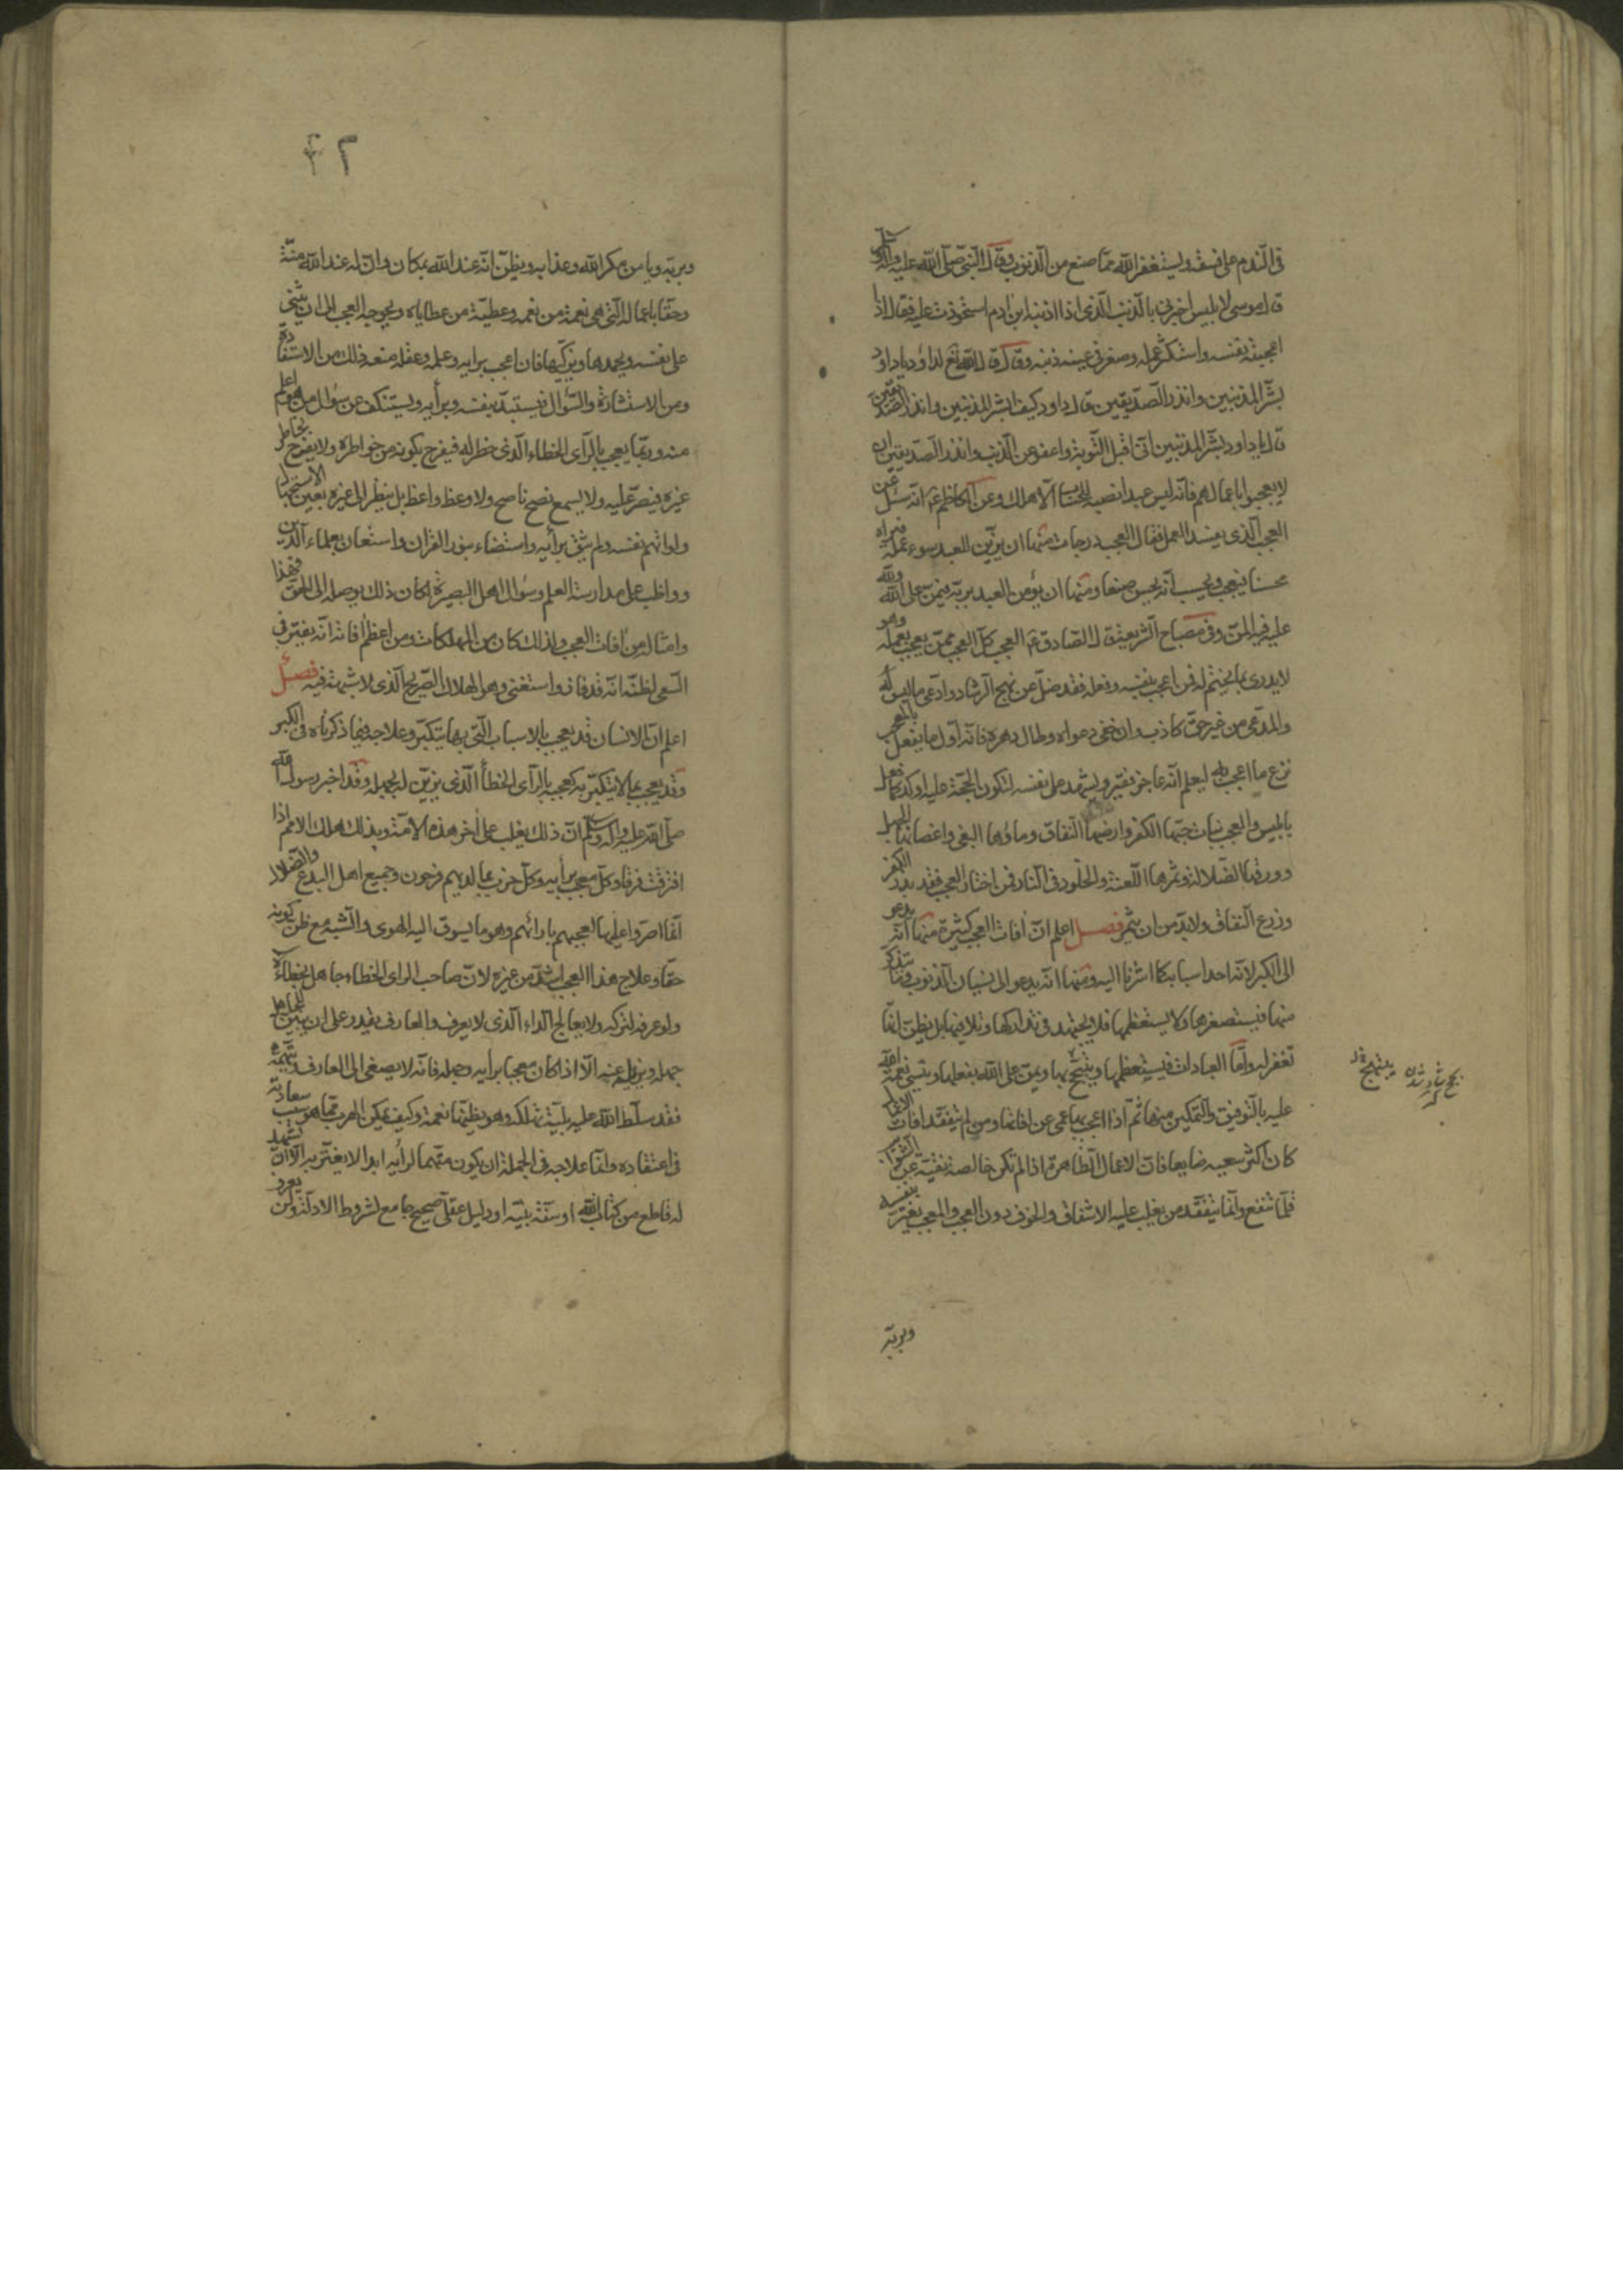 فى الندم على فسقه ويستغفر الله عما صنع من الذنوب وقال النبى صلى الله عليه واله وسلم
قال موسى لابليس اخبرنى بالذنب الذى اذا اذنبه ابن ادم استحوذت عليه فقال اذا
اعجبته نفسه واستكثر عمله وصغر فى عينه ذنبه وقال قال الله تع لداود ياداود
بشر المذنبين وانذر الصديقين قال داود كيف ابشر المذنبين وانذر الصديقين
قال ياداود بشر المذنبين انى اقبل التوبة واعفو عن الذنب وانذر الصديقين ان
لا يعجبوا باعمالهم فانه ليس عبد انصبه للحساب الا هلك وعن الكاظم ع انه سئل عن
العجب الذى يفسد العمل فقال العجب درجات منها ان يزين للعبد سوء عمله فيراه
حسنا فيعجبه ويحسب انه يحسن صنعا ومنها ان يؤمن العبد بربه فيمن على الله ولله
عليه فيه المن وفى مصباح الشريعة قال الصادق ع العجب كل العجب ممن يعجب بعمله وهو
لا يدرى بما يختم له فمن اعجب بنفسه وفعله فقد ضل عن نهج الرشاد وادعى ما ليس له
والمدعى من غير حق كاذب وان خفى دعواه وطال دهره فانه اول ما يفعل بالمعجب
نزع ما اعجب به ليعلم انه عاجز فقير ويشهد على نفسه لتكون الحجة عليه اوكد كما فعل
بابليس والعجب نبات حبها الكفر وارضها النفاق وماؤها البغى واغصانها الجهل
وورقها الضلالة وثمرها اللعنة والخلود فى النار فمن اختار العجب فقد بذر الكفر
وزرع النفاق ولابد من ان يثمر فصل اعلم ان افات العجب كثيرة منها انه يدعو
الى الكبر لانه احد اسبابه كما اشرنا اليه ومنها انه يدعو الى نسيان الذنوب وما يتذكر
منها فيستصغرها ولا يستعظمها فلا يجتهد فى تداركها وتلافيها بل يظن انها
تغفر له واما العبادات فيستعظمها ويتبجح بها ويمن على الله بفعلها وينسى نعمة الله
عليه بالتوفيق والتمكين منها ثم اذا اعجب بها عمى عن افاتها ومن لم يتفقد افات الاعمال
كان اكثر سعيه ضايعا فان الاعمال الظاهرة اذا لم تكن خالصة نقية عن الشوائب
قلما تنفع وانما يتفقد من يغلب عليه الاشفاق والخوف دون العجب والمعجب يغتر بنفسه
وبربه
بتبجح
شاد شدن
وبربه ويامن مكر الله وعذابه ويظن انه عند الله بمكان وان له عند الله منة
وحقا باعماله التى هى نعمة من نعمه وعطية من عطاياه ويخرجه العجب الى ان يثنى
على نفسه ويحمدها ويزكيها فان اعجب برايه وعلمه وعقله منعه ذلك من الاستفادة
ومن الاستشارة والسؤال فيستبد بنفسه وبرأيه ويستنكف عن سؤال من هو اعلم
منه وربما يعجب بالرأى الخطاء الذى خطر له فيفرح بكونه من خواطره ولا يفرح بخاطر
غيره فيصر عليه ولا يسمع نصح ناصح ولا وعظ واعظ بل ينظر الى غيره بعين الاستجهال
ولو اتهم نفسه ولم يثق برأيه واستضاء بنور القران واستعان بعلماء الدين
وواظب على مدارسة العلم وسؤال اهل البصيرة لكان ذلك يوصله الى الحق فهذا
وامثاله من افات العجب ولذلك كان من المهلكات ومن اعظم افاته انه يفتر فى
السعى لظنه انه قد فاز واستغنى وهو الهلاك الصريح الذى لا شبهة فيه فصل
اعلم ان الانسان قد يعجب بالاسباب التى بها يتكبر وعلاجه فيما ذكرناه فى الكبر
وقد يعجب بما لا يتكبر به كعجبه بالرأى الخطأ الذى يزين له بجهله وقد اخبر رسول الله
صلى الله عليه واله وسلم ان ذلك يغلب على اخر هذه الامة وبذلك هلك الامم اذا
افترقت فرقا وكل معجب برأيه وكل حزب بما لديهم فرحون وجميع اهل البدع والضلال
انما اصروا عليها لعجبهم بارائهم وهو ما يسوق اليه الهوى والشبه مع ظن كونه
حقا وعلاج هذا العجب اشد من غيره لان صاحب الراى الخطاء جاهل بخطائه
ولو عرفه لتركه ولا يعالج الداء الذى لا يعرف والعارف يقدر على ان يبين للجاهل
جهله ويزيله عنه الا اذا كان معجبا برأيه وجهله فانه لا يصغى الى العارف ويتهمه
فقد سلط الله عليه بلية تهلكه وهو يظنها نعمة وكيف يمكن الهرب مما هو سبب سعادته
فى اعتقاده وانما علاجه فى الجملة ان يكون متهما لرأيه ابدا لا يغتر به الا ان يشهد
له قاطع من كتاب الله او سنة نبيه او دليل عقلى صحيح جامع لشروط الادلة ولن يعرف